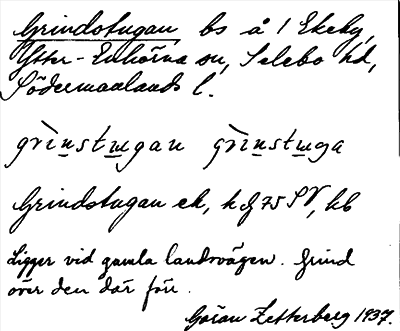 Grindstugan bs å 1 Ekeby,
Ytter-Enhörna sn, Selebo hd,
Södermanlands l.
grìnstɯgan grìnstɯga
Grindstugan ek, hg 75 SV, hb
Ligger vid gamla landsvägen. Grind
över den där förr.
Göran Zetterberg 1937.